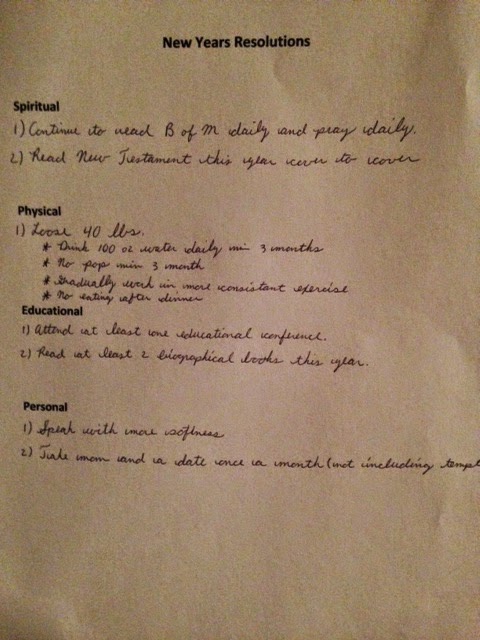 New Years Resolutions
Spiritual
1) Continue to read B of M daily and pray daily.
2) Read New Testament this year cover to cover
Physical
1) Loose 40 lbs.
* Drink 100 oz water daily min 3 months
* No pop min 3 month
* Gradually work in more consistant exercise
* No eating after dinner
Educational
1) Attend at least one educational conference.
2) Read at least 2 biographical books this year.
Personal
1) Speak with more softness
2) Take mom and a date once a month (not including templ